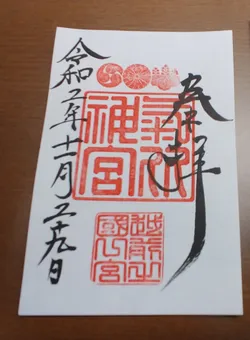 奉拝
氣比
神宮
越前
國一宮
令和二年十一月二十九日